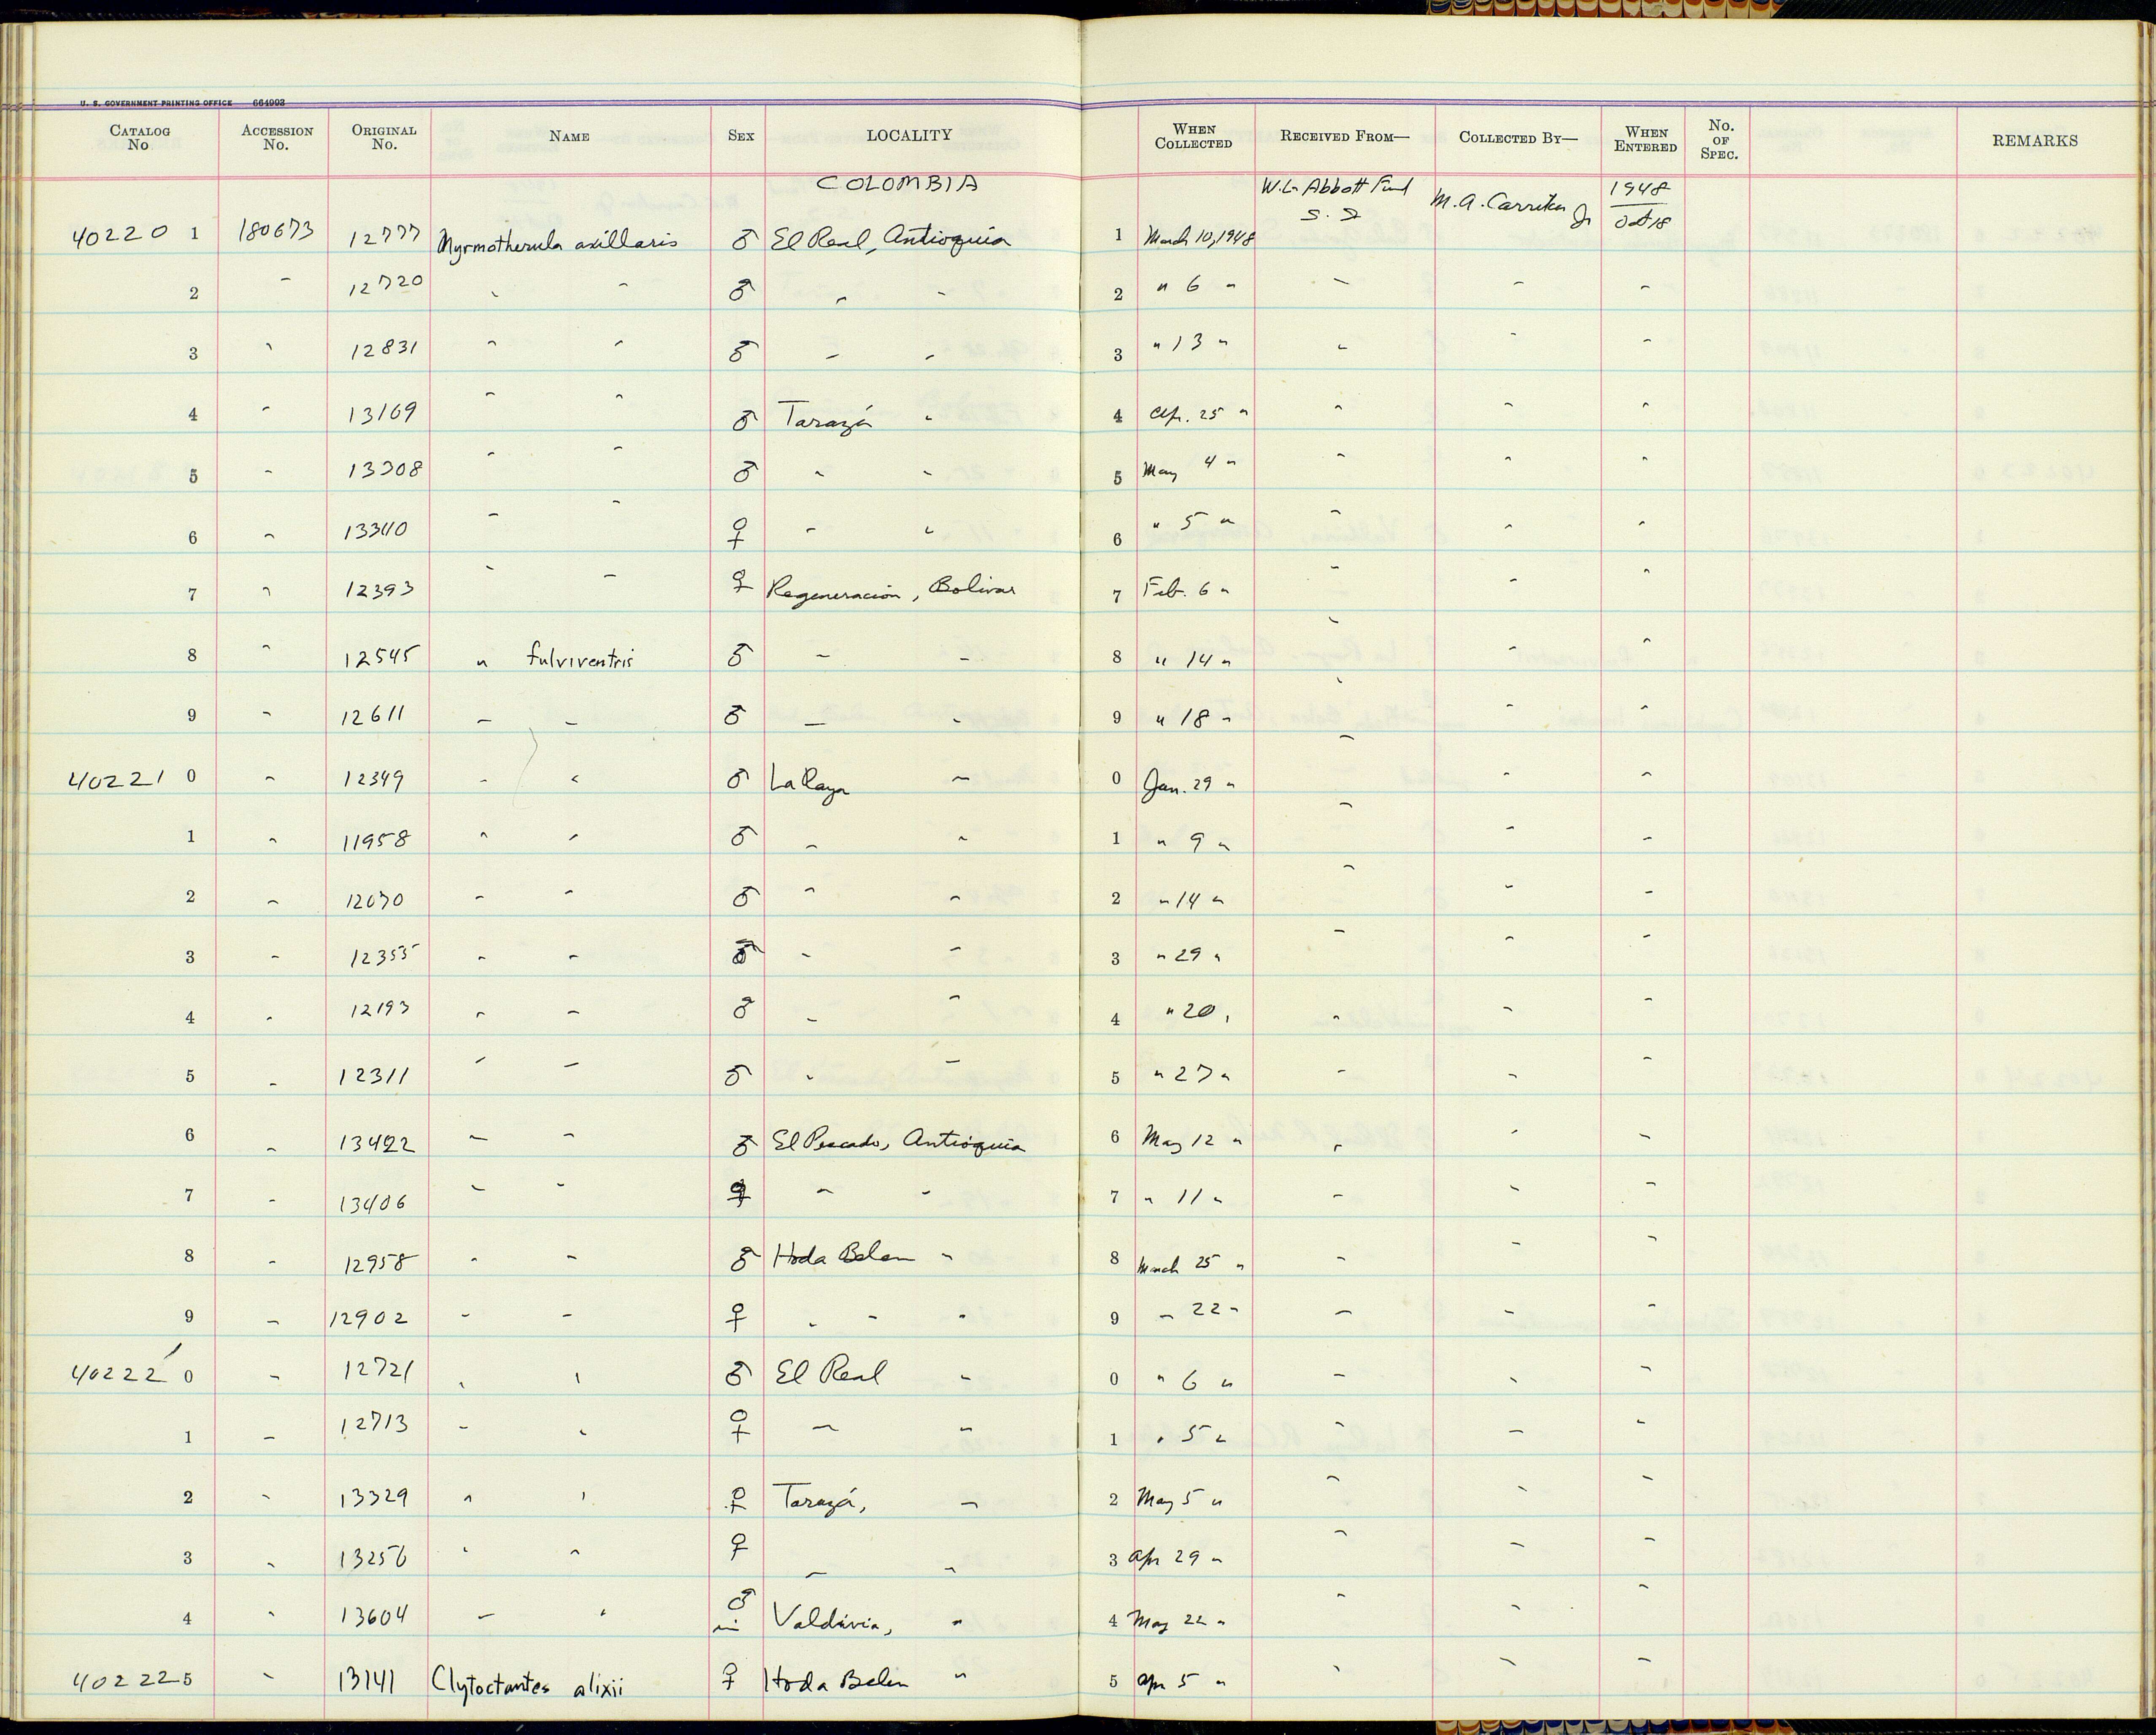 U. S. GOVERNMENT PRINTING OFFICE 664003
CATALOG No ACCESSION No. ORIGINAL No. NAME SEX LOCALITY WHEN COLLECTED RECEIVED FROM— COLLECTED BY— WHEN ENTERED No. OF SPEC. REMARKS
COLOMBIA W. L. Abbott Fund S. I. M. A. Carriker Jr 1948
40220 1 180673 12777 Myrmotherula axillaris ♂ El Real, Antioquia 1 March 10, 1948 Oct 18
2 " 12720 " " ♂ " " 2 " 6 " " " "
3 " 12831 " " ♂ " " 3 " 13 " " " "
4 " 13169 " " ♂ Tarazá " 4 Apr. 25 " " " "
5 " 13308 " " ♂ " " 5 May 4 " " " "
6 " 13340 " " ♀ " " 6 " 5 " " " "
7 " 12393 " " ♀ Regeneracion, Bolivar 7 Feb. 6 " " " "
8 " 12545 " fulviventris ♂ " " 8 " 14 " " " "
9 " 12611 " " ♂ " " 9 " 18 " " " "
40221 0 " 12349 " " ♂ La Raya " 0 Jan. 29 " " " "
1 " 11958 " " ♂ " " 1 " 9 " " " "
2 " 12070 " " ♂ " " 2 " 14 " " " "
3 " 12355 " " ♂ " " 3 " 29 " " " "
4 " 12193 " " ♂ " " 4 " 20 " " " "
5 " 12311 " " ♂ " " 5 " 27 " " " "
6 " 13422 " " ♂ El Pescado, Antioquia 6 May 12 " " " "
7 " 13406 " " ♀ " " 7 " 11 " " " "
8 " 12958 " " ♂ Hoda Belen " 8 March 25 " " " "
9 " 12902 " " ♀ " " " 9 " 22 " " " "
40222 0 " 12721 " " ♂ El Real " 0 " 6 " " " "
1 " 12713 " " ♀ " " 1 " 5 " " " "
2 " 13329 " " ♀ Tarazá, " 2 May 5 " " " "
3 " 13256 " " ♀ " " 3 Apr 29 " " " "
4 " 13604 " " ♂ Valdivia, " 4 May 22 " " " "
40222 5 " 13141 Clytoctantes alixii ♀ Hoda Belen " 5 Apr 5 " " " "